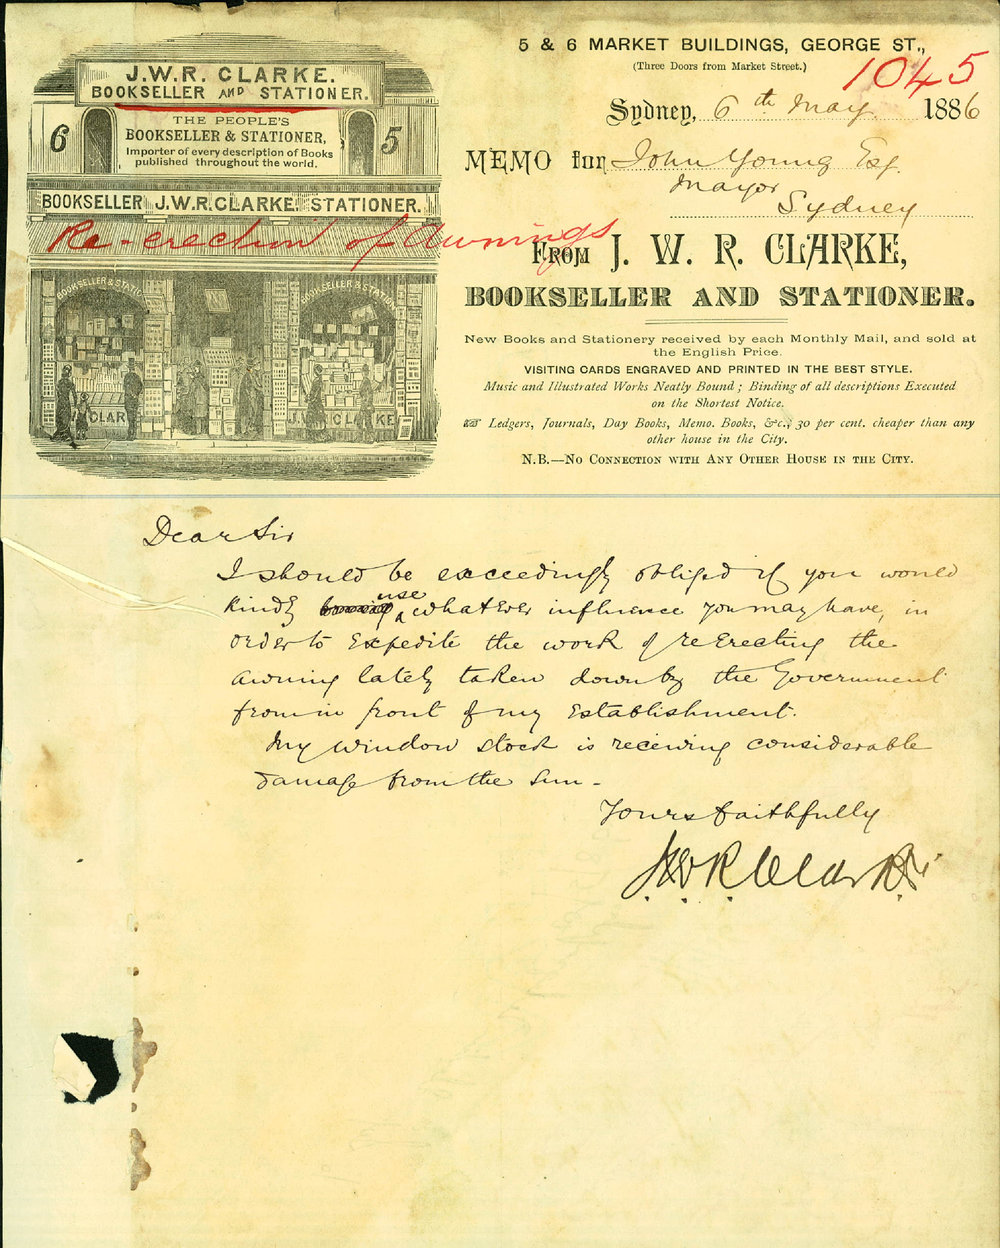 5 & 6 MARKET BUILDINGS, GEORGE ST.,
(Three Doors from Market Street.)
1045
Sydney, 6th May 1886
MEMO for John Young Esq.
Mayor
Sydney
FROM J. W. R. CLARKE,
BOOKSELLER AND STATIONER.
New Books and Stationery received by each Monthly Mail, and sold at
the English Price.
VISITING CARDS ENGRAVED AND PRINTED IN THE BEST STYLE.
Music and Illustrated Works Neatly Bound; Binding of all descriptions Executed
on the Shortest Notice.
Ledgers, Journals, Day Books, Memo. Books, &c., 30 per cent. cheaper than any
other house in the City.
N.B.—No Connection with Any Other House in the City.
J.W.R. CLARKE.
BOOKSELLER AND STATIONER.
THE PEOPLE'S
BOOKSELLER & STATIONER,
Importer of every description of Books
published throughout the world.
6
5
BOOKSELLER J.W.R. CLARKE. STATIONER.
Re-erection of Awnings
BOOKSELLER & STATIO
BOOKSELLER & STATION
CLAR
J. CLARKE
Dear Sir
I should be exceedingly obliged if you would
kindly use whatever influence you may have, in
order to expedite the work of reerecting the
awning lately taken down by the Government
from in front of my establishment.
My window stock is receiving considerable
damage from the sun -
Yours faithfully
J.W.R. Clarke